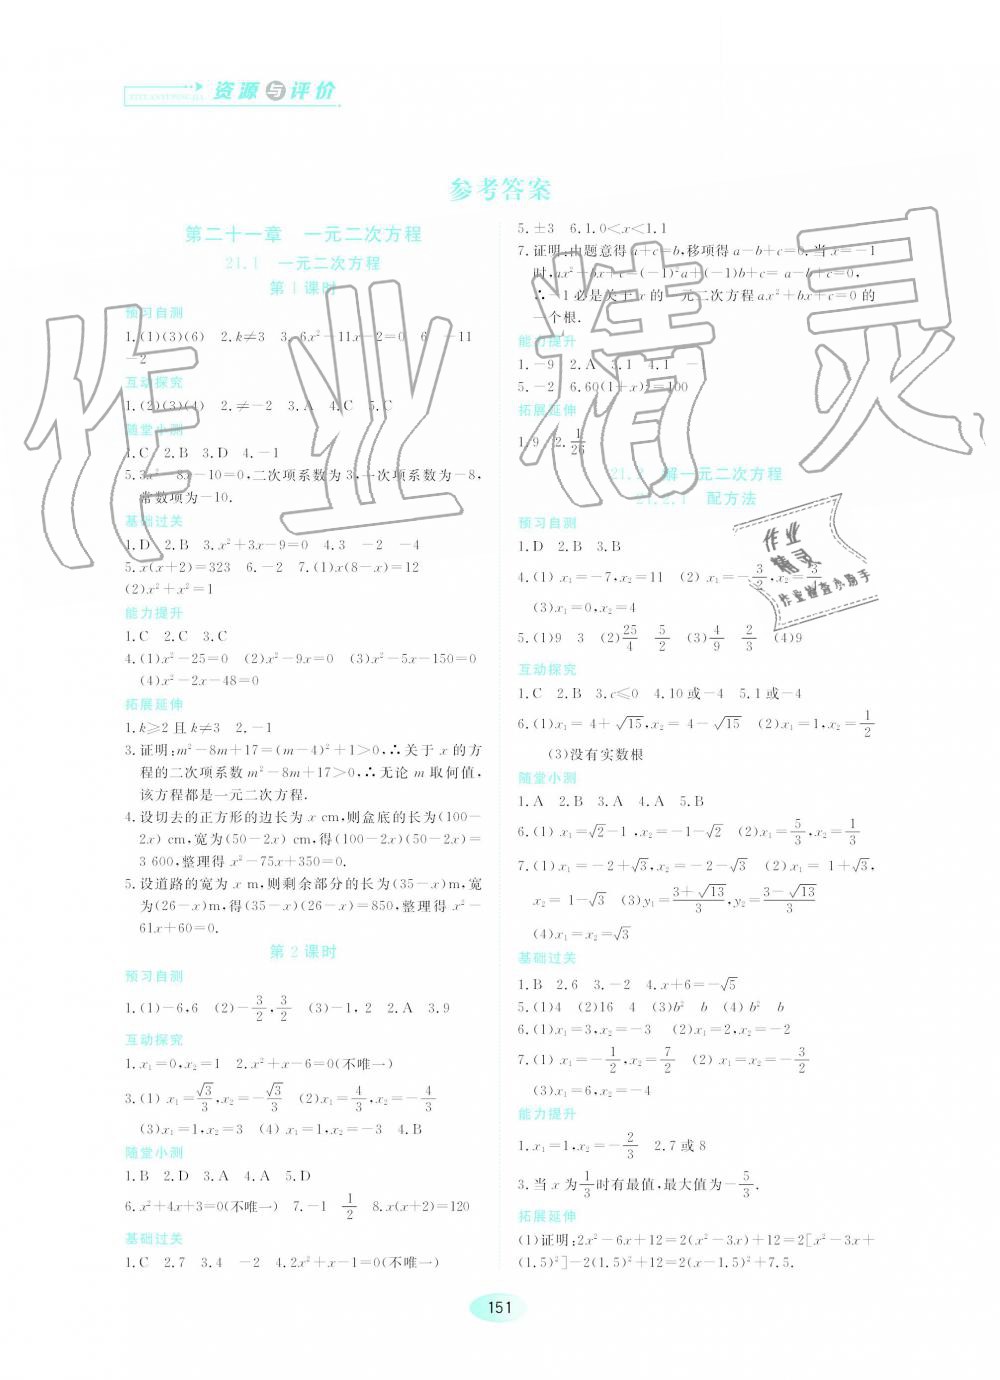 资源与评价
ZIYUANYUPINGJIA
参考答案
第二十一章 一元二次方程
21.1 一元二次方程
第1课时
预习自测
1.(1)(3)(6) 2.k≠3 3.6x²-11x-2=0 6 -11
-2
互动探究
1.(2)(3)(4) 2.≠-2 3.A 4.C 5.C
随堂小测
1.C 2.B 3.D 4.-1
5.3x²-8x-10=0,二次项系数为3,一次项系数为-8,
常数项为-10.
基础过关
1.D 2.B 3.x²+3x-9=0 4.3 -2 -4
5.x(x+2)=323 6.-2 7.(1)x(8-x)=12
(2)x²+x²=1
能力提升
1.C 2.C 3.C
4.(1)x²-25=0 (2)x²-9x=0 (3)x²-5x-150=0
(4)x²-2x-48=0
拓展延伸
1.k≥2且k≠3 2.-1
3.证明:m²-8m+17=(m-4)²+1>0,∴关于x的方
程的二次项系数m²-8m+17>0,∴无论m取何值,
该方程都是一元二次方程.
4.设切去的正方形的边长为x cm,则盒底的长为(100-
2x) cm,宽为(50-2x) cm,得(100-2x)(50-2x)=
3 600,整理得x²-75x+350=0.
5.设道路的宽为x m,则剩余部分的长为(35-x)m,宽
为(26-x)m,得(35-x)(26-x)=850,整理得x²-
61x+60=0.
第2课时
预习自测
1.(1)-6,6 (2)-3/2,3/2 (3)-1,2 2.A 3.9
互动探究
1.x₁=0,x₂=1 2.x²+x-6=0(不唯一)
3.(1) x₁=√3/3,x₂=-√3/3 (2)x₁=4/3,x₂=-4/3
(3)x₁=1,x₂=3 (4) x₁=1,x₂=-3 4.B
随堂小测
1.B 2.D 3.A 4.A 5.D
6.x²+4x+3=0(不唯一) 7.-1 1/2 8.x(x+2)=120
基础过关
1.C 2.7 3.4 -2 4.2x²+x-1=0(不唯一)
5.±3 6.1.0<x<1.1
7.证明:由题意得a+c=b,移项得a-b+c=0.当x=-1
时,ax²+bx+c=(-1)²a+(-1)b+c= a-b+c=0,
∴-1必是关于x的一元二次方程ax²+bx+c=0的
一个根.
能力提升
1.-9 2.A 3.1 4.1 -1
5.-2 6.60(1+x)²=100
拓展延伸
1.9 2.1/26
21.2 解一元二次方程
21.2.1 配方法
预习自测
1.D 2.B 3.B
4.(1) x₁=-7,x₂=11 (2) x₁=-3/2,x₂=3/2
(3)x₁=0,x₂=4
5.(1)9 3 (2)25/4 5/2 (3)4/9 2/3 (4)9
互动探究
1.C 2.B 3.c≤0 4.10或-4 5.1或-4
6.(1)x₁= 4+ √15,x₂= 4-√15 (2)x₁=1,x₂=1/2
(3)没有实数根
随堂小测
1.A 2.B 3.A 4.A 5.B
6.(1) x₁=√2-1 ,x₂=-1-√2 (2)x₁=5/3,x₂=1/3
7.(1)x₁=-2+√3,x₂=-2-√3 (2)x₁= 1+√3,
x₂= 1-√3 (3)y₁=3+√13/3,y₂=3-√13/3
(4)x₁=x₂=√3
基础过关
1.B 2.6 3.-2 4.x+6=-√5
5.(1)4 (2)16 4 (3)b² b (4) b² b
6.(1)x₁=3,x₂=-3 (2)x₁=2,x₂=-2
7.(1) x₁=-1/2,x₂=7/2 (2) x₁=x₂=-3/2
(3)x₁=6,x₂=-4
能力提升
1.x₁=1,x₂=-2/3 2.7或8
3.当x为1/3时有最值,最大值为-5/3.
拓展延伸
(1)证明:2x²-6x+12=2(x²-3x)+12=2[x²-3x+
(1.5)²]-2(1.5)²+12=2(x-1.5)²+7.5.
151
作业精灵
作业
精灵
作业检查小助手